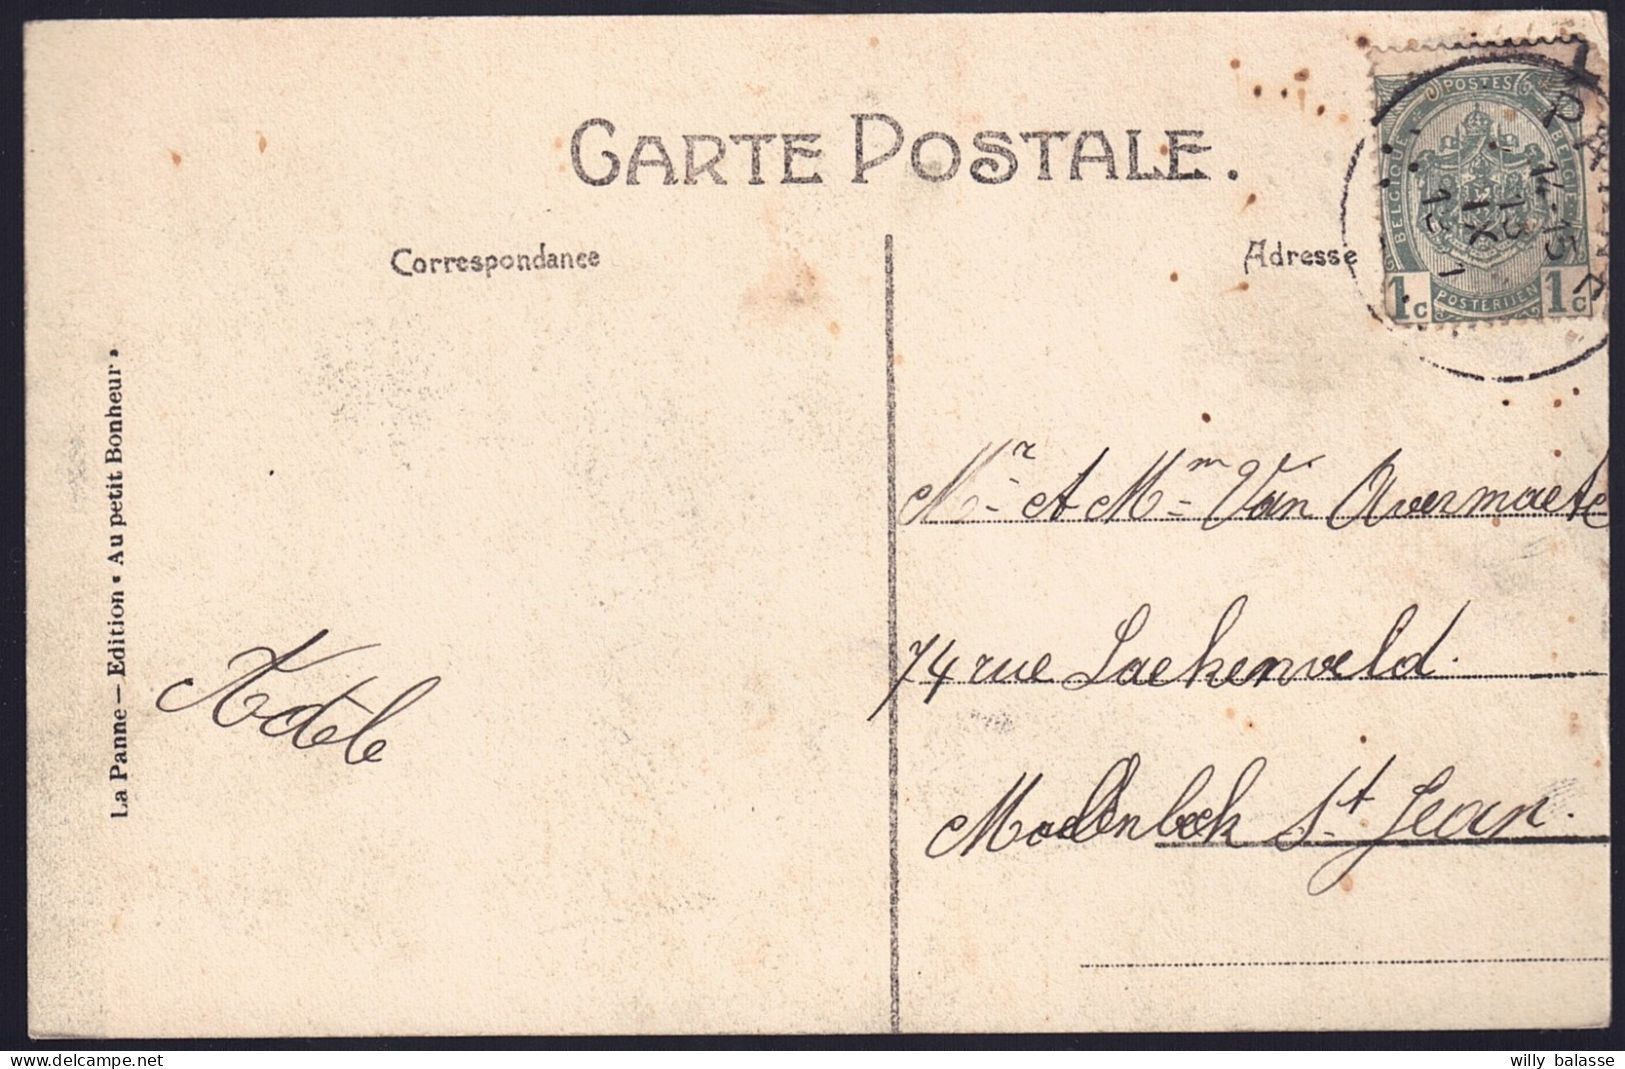 CARTE POSTALE.
Correspondance
Adresse
POSTES
BELGIQUE
BELGIË
1c
POSTERIJEN
1c
14-15
13
IX
12
La Panne — Edition « Au petit Bonheur »
Mr et Mm Van Avermaete
74 rue Laekenveld.
Molenbeek St Jean.
Adèle
willy balasse